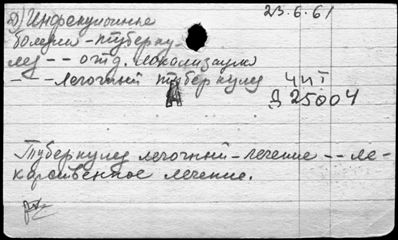 23.6.61
д) Инфекционные
болезни - туберку-
лез -- отд. локализации
- - - легочный туберкулез
ЧИТ
Д 25004
Туберкулез легочный - лечение -- ле-
карственное лечение.